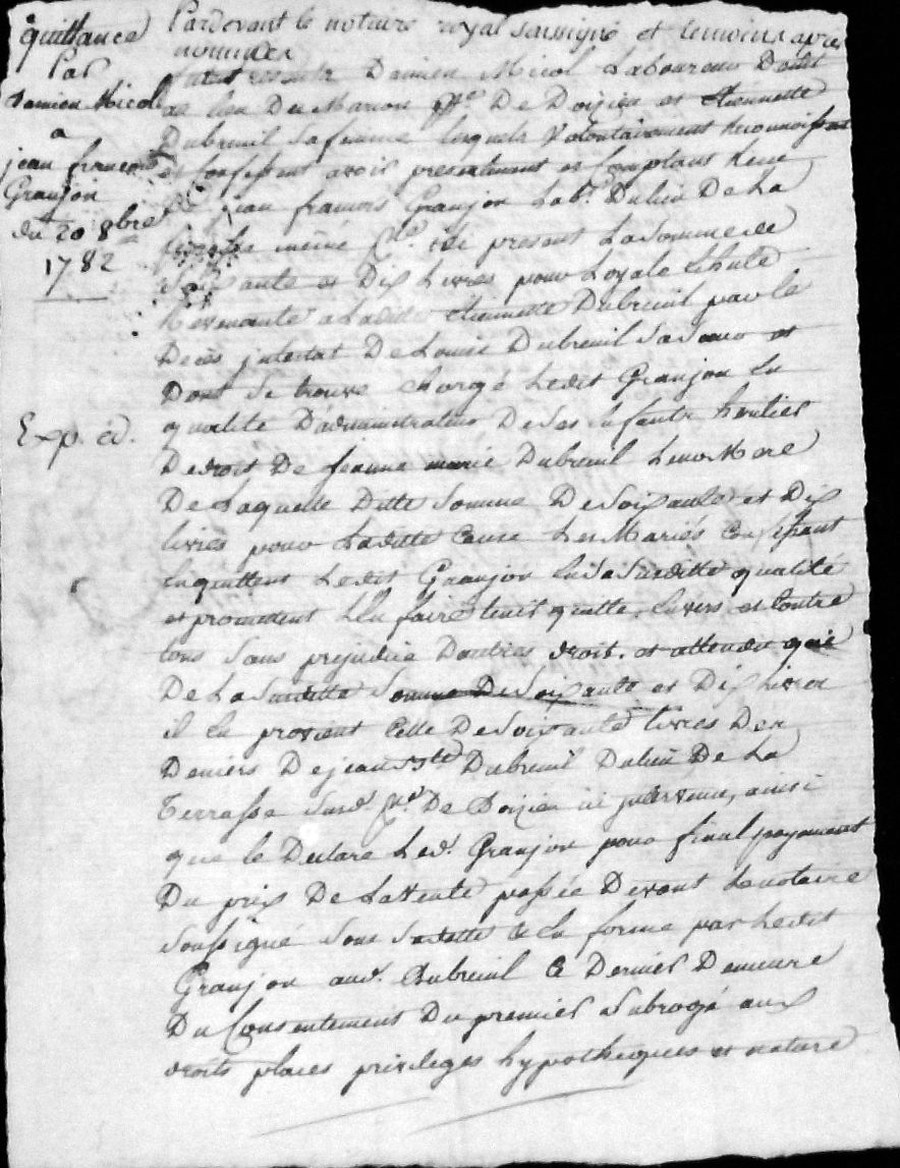 quittance
Par
Damien Micol
a
jean françois
Granjon
du 20 8bre
1782
Exp. ed.
Pardevant le notaire royal soussigné et temoins apres
nommés
Damien Micol Laboureur
du lieu Du Marion psse. De Doizieu et etiennette
Dubreuil sa femme lesquels volontairement reconnoissent
et confessent avoir presentement et comptant recu
jean francois Granjon lab. Du lieu De La
terrasse même psse. ici present La Somme de
soixante et Dix Livres pour Loyale
Revenante a Ladite etiennette Dubreuil par le
Decès intestat De Louise Dubreuil sa soeur et
Dont Se trouve chargé Ledit Granjon En
qualité D'administrateur De Ses enfants heritiers
De droit De jeanne marie Dubreuil Leur Mere
De Laquelle Ditte Somme De Soixante et Dix
livres pour Laditte Cause Les Mariés confessant
Enquittent Ledit Granjon En Sa Susditte qualité
et promettent L'En faire tenir quitte Envers et Contre
tous Sans prejudice D'autres droit. et attendu que
De La Susditte Somme De Soixante et Dix Livres
il En provient Celle De Soixante livres Des
Deniers De jean Bte Dubreuil Du lieu De La
Terrasse Susd. psse. De Doizieu ici intervenu, ainsi
que le Declare Led. Granjon pour final payement
Du prix De La vente passée Devant Le notaire
Soussigné Sous Sa datte En forme par Ledit
Granjon aud. Dubreuil Ce Dernier Demeure
Du Consentement Du premier Subrogé aux
droits places privileges hypotheques et nature